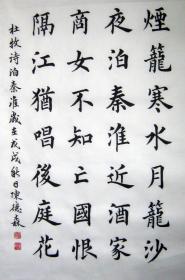 煙籠寒水月籠沙
夜泊秦淮近酒家
商女不知亡國恨
隔江猶唱後庭花
杜牧诗泊秦淮歲在戊戌秋日陳德森